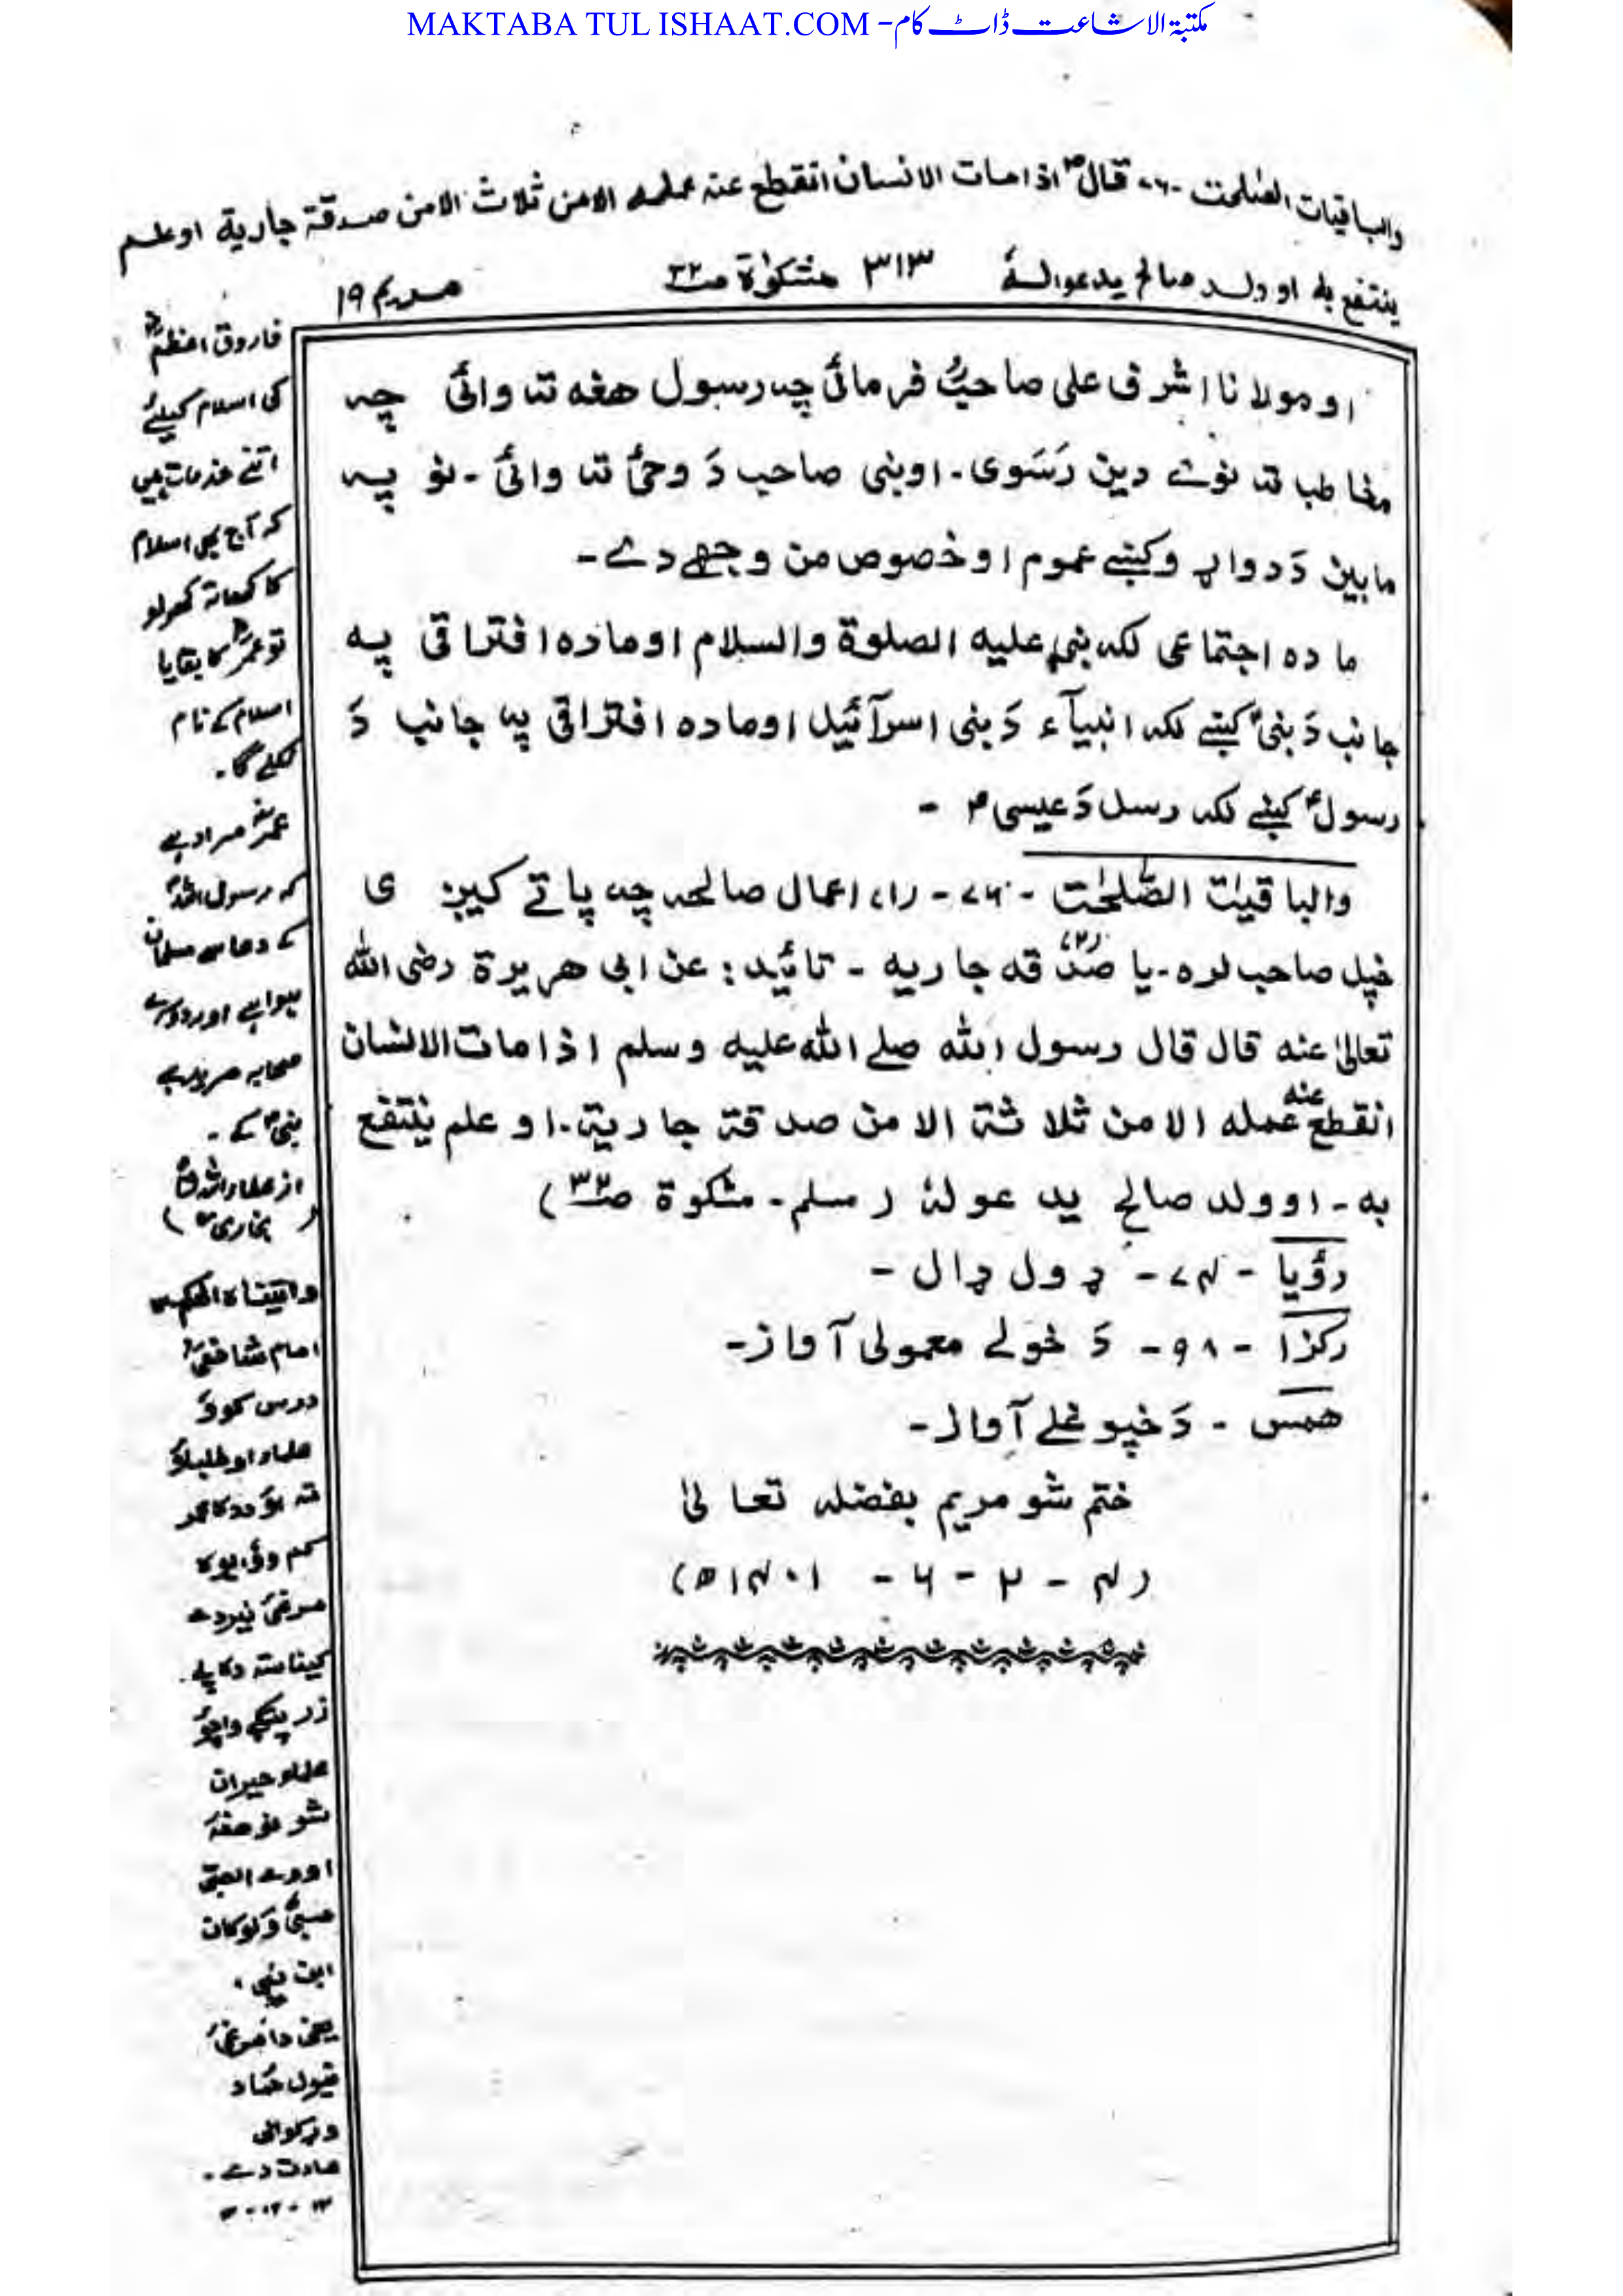 MAKTABA TUL ISHAAT.COM - مکتبۃ الاشاعت ڈاٹ کام
والباقیات الصٰلحٰت -٧٦- قال ؐ اذا مات الانسان انقطع عنہ عملہ الا من ثلاث الا من صدقۃ جاریۃ او علم
ینتفع بہ او ولد صالح یدعولہٗ ٣١٣ مشکوٰۃ صـ٣٢ مریم ١٩
او مولانا اشرف علی صاحبؒ فرمائی چہ رسول ھغہ تہ وائی چہ
مخاطب تہ نوے دین رَسَوی۔ اونبی صاحب دَ وحیٔ تہ وائی۔ نو پہ
مابین دَ دواړو کښے عموم او خصوص من وجھے دے۔
مادہ اجتماعی لکہ نبی علیہ الصلوۃ والسلام او مادہ افتراقی پہ
جانب دَ نبیؑ کښے لکہ انبیآء دَ بنی اسرآئیل او مادہ افتراقی پہ جانب دَ
رسولؑ کښے لکہ رسل دَ عیسیؑ -
والباقیٰت الصّٰلحٰت -٧٦- (١) اعمال صالحہ چہ پاتے کیږی
خپل صاحب لرہ۔ یا (٢) صدقہ جاریہ - تائید: عن ابی ھریرۃ رضی اللہ
تعالیٰ عنہ قال قال رسول اللہ صلے اللہ علیہ وسلم اذا مات الانسان
انقطع عنہ عملہ الا من ثلاثۃ الا من صدقۃ جاریۃ۔ او علم ینتفع
بہ - او ولد صالح یدعولہٗ (مسلم - مشکوۃ صـ٣٢)
رؤیا - ٧٤ - ډول ډال -
رکزا - ٩٨ - دَ خولے معمولی آواز -
ھمس - دَ خپو غلے آواز -
ختم شو مریم بفضلہ تعالیٰ
(٤ - ٢ - ٦ - ١٤٠١ھ)
فاروق اعظمؓ
کی اسلام کیلئے
اتنے خدمات ہیں
کہ آج بھی اسلام
کا کھاتہ کھولو
تو عمرؓ کا بقایا
اسلام کے نام
نکلے گا۔
عمرؓ مراد ہے
کہ رسول اللہؐ
کے دعا سے مسلمان
ہوا ہے اور دوسرے
صحابہ مرید ہے
نبیؐ کے۔
(بخاری)
واتیناہ الحکم
امام شافعیؒ
درس کوؤ
علماء او طلباؤ
تہ
علماء حیران
شو نو ھغہ